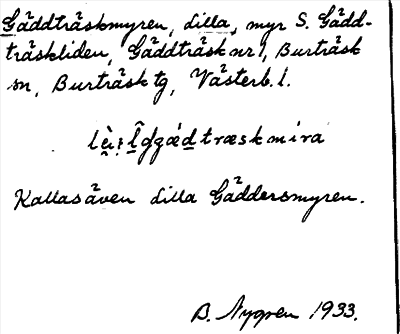 Gäddträskmyren, dilla, myr S. Gädd-
träskliden, Gäddträsk nr 1, Burträsk
sn, Burträsk tg, Västerb. l.
Kallas även dilla Gäddersmyren.
B. Nygren 1933.